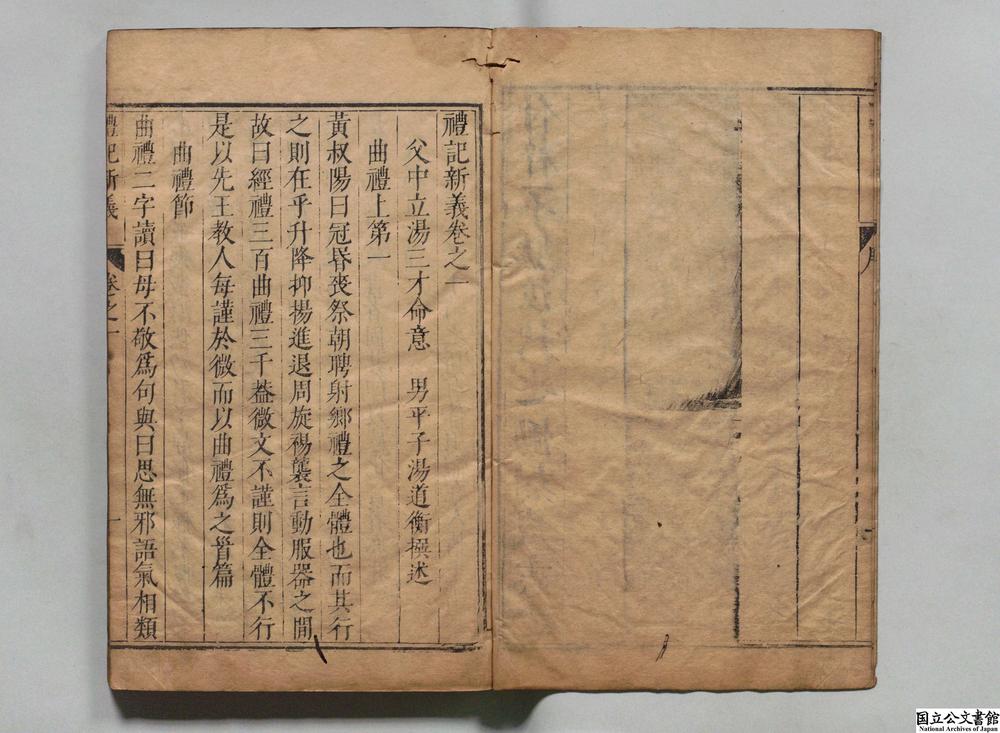 禮記新義卷之一
父中立湯三才命意　男平子湯道衡撰述
曲禮上第一
黃叔陽曰冠昏喪祭朝聘射鄉禮之全體也而其行
之則在乎升降抑揚進退周旋裼襲言動服器之間
故曰經禮三百曲禮三千葢微文不謹則全體不行
是以先王教人每謹於微而以曲禮爲之首篇
曲禮節
曲禮二字讀曰毋不敬爲句與曰思無邪語氣相類
禮記新義
卷之一
一
国立公文書館
National Archives of Japan